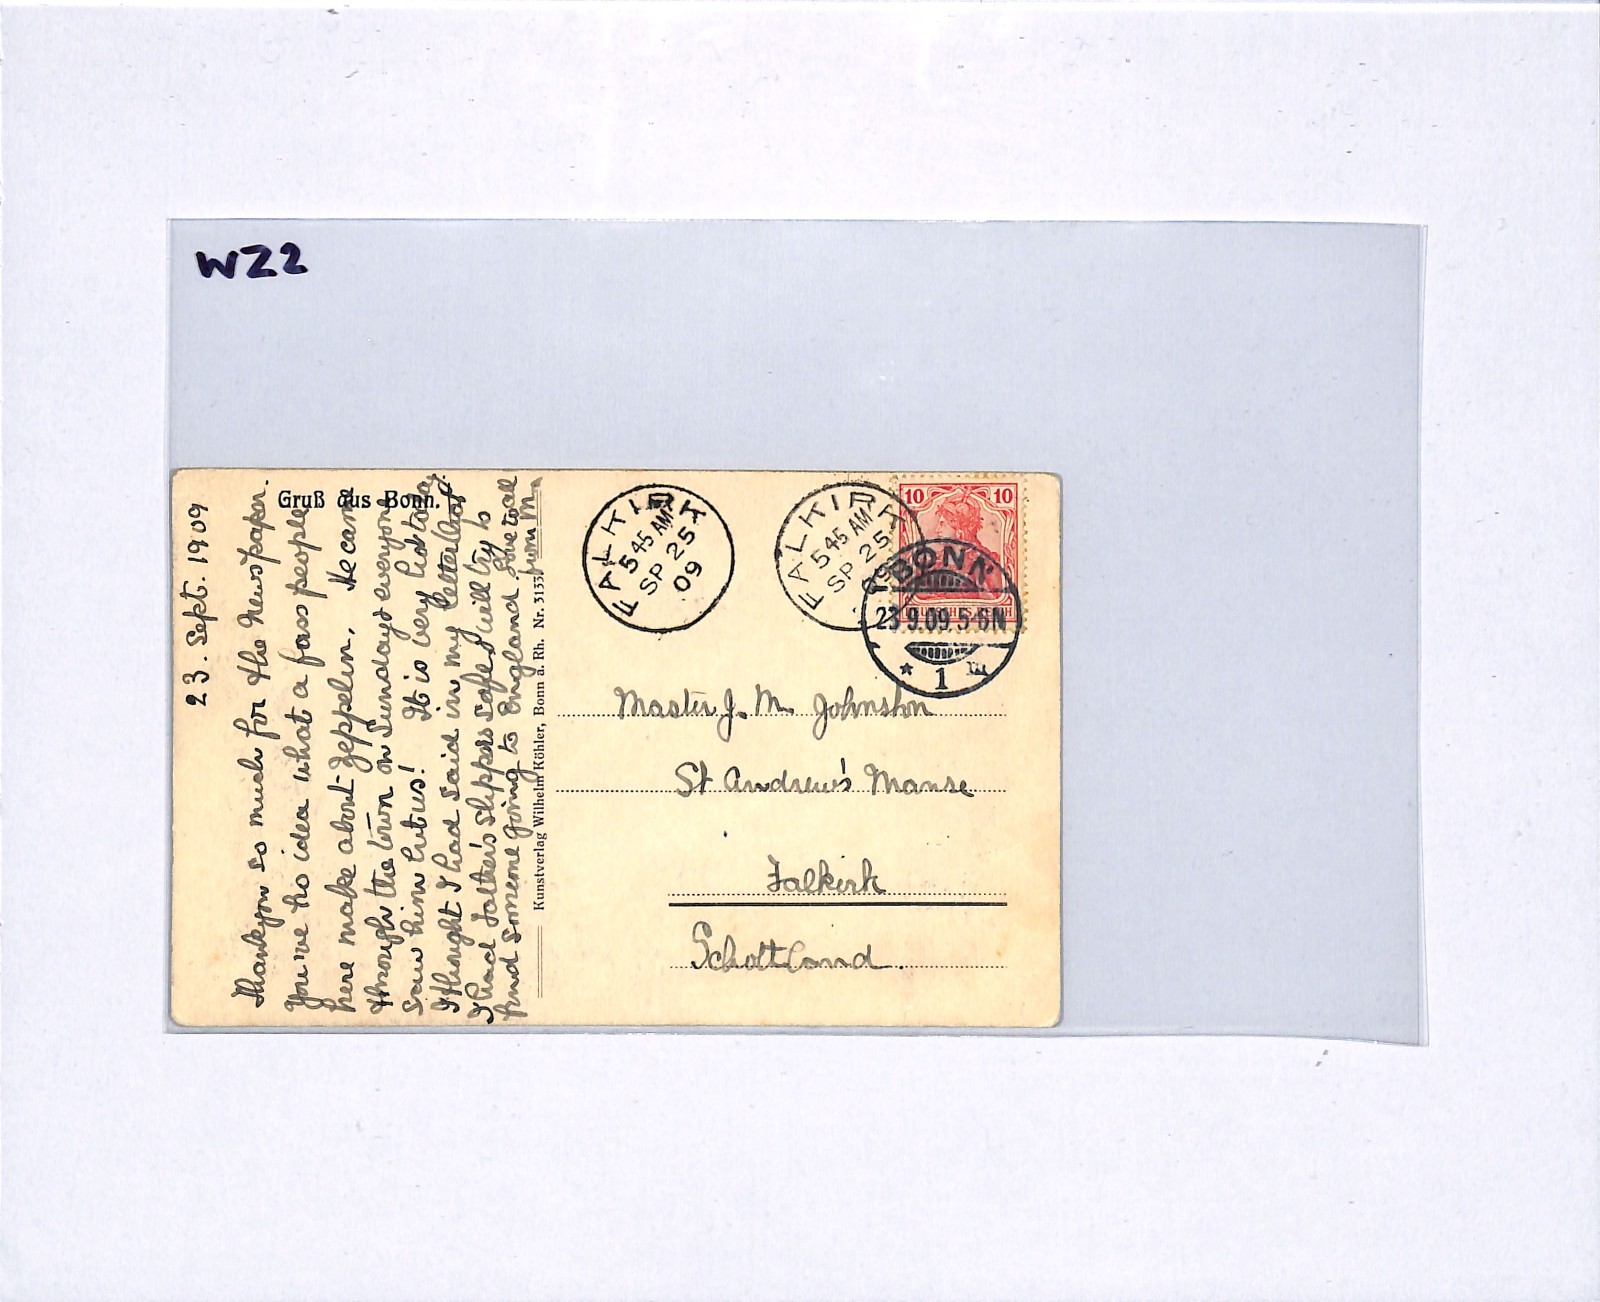 WZ2
Gruß aus Bonn.
23. Sept. 1909
Thankyou so much for the Newspaper.
You've no idea what a fass people
here make about Zeppelin. He came
through the town on Sunday & everyone
saw him but us! It is very hot today
I thought I had said in my letter that
I had father's slippers safe, I will try to
find someone going to England. Love to all
from M.
Kunstverlag Wilhelm Köhler, Bonn a. Rh. Nr. 3135
FALKIRK
545 AM
SP 25
09
FALKIRK
545 AM
SP 25
09
10 10
DEUTSCHES REICH
BONN
23.9.09.5-6N
* 1 m
Master J. M. Johnston
St Andrew's Manse
Falkirk
Schottland.